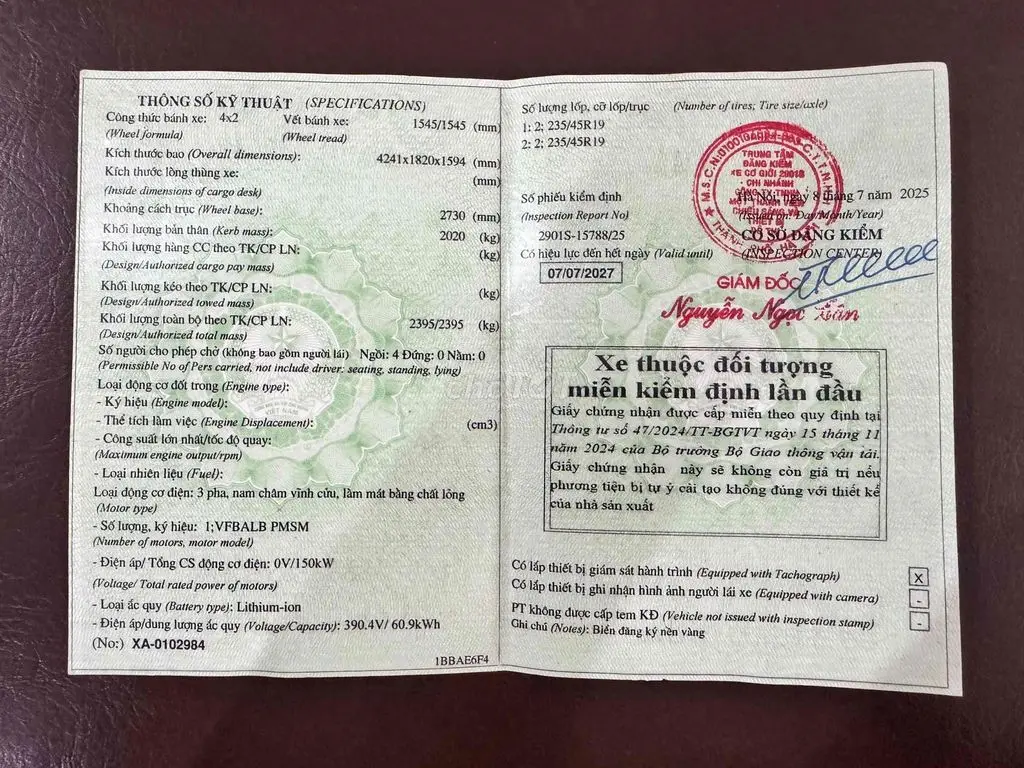 THÔNG SỐ KỸ THUẬT (SPECIFICATIONS)
Công thức bánh xe: 4x2 Vết bánh xe: 1545/1545 (mm)
(Wheel formula) (Wheel tread)
Kích thước bao (Overall dimensions): 4241x1820x1594 (mm)
Kích thước lòng thùng xe: (mm)
(Inside dimensions of cargo desk)
Khoảng cách trục (Wheel base): 2730 (mm)
Khối lượng bản thân (Kerb mass): 2020 (kg)
Khối lượng hàng CC theo TK/CP LN: (kg)
(Design/Authorized cargo pay mass)
Khối lượng kéo theo TK/CP LN: (kg)
(Design/Authorized towed mass)
Khối lượng toàn bộ theo TK/CP LN: 2395/2395 (kg)
(Design/Authorized total mass)
Số người cho phép chở (không bao gồm người lái) Ngồi: 4 Đứng: 0 Nằm: 0
(Permissible No of Pers carried, not include driver: seating, standing, lying)
Loại động cơ đốt trong (Engine type):
- Ký hiệu (Engine model):
- Thể tích làm việc (Engine Displacement): (cm3)
- Công suất lớn nhất/tốc độ quay:
(Maximum engine output/rpm)
- Loại nhiên liệu (Fuel):
Loại động cơ điện: 3 pha, nam châm vĩnh cửu, làm mát bằng chất lỏng
(Motor type)
- Số lượng, ký hiệu: 1;VFBALB PMSM
(Number of motors, motor model)
- Điện áp/ Tổng CS động cơ điện: 0V/150kW
(Voltage/ Total rated power of motors)
- Loại ắc quy (Battery type): Lithium-ion
- Điện áp/dung lượng ắc quy (Voltage/Capacity): 390.4V/ 60.9kWh
(No:) XA-0102984
1BBAE6F4
Số lượng lốp, cỡ lốp/trục (Number of tires; Tire size/axle)
1: 2; 235/45R19
2: 2; 235/45R19
TRUNG TÂM
ĐĂNG KIỂM
XE CƠ GIỚI 2901S
- CHI NHÁNH
Số phiếu kiểm định Hà Nội, ngày 8 tháng 7 năm 2025
(Inspection Report No) (Issued on: Day/Month/Year)
2901S-15788/25 CƠ SỞ ĐĂNG KIỂM
Có hiệu lực đến hết ngày (Valid until) (INSPECTION CENTER)
07/07/2027
GIÁM ĐỐC
Nguyễn Ngọc
Xe thuộc đối tượng
miễn kiểm định lần đầu
Giấy chứng nhận được cấp miễn theo quy định tại
Thông tư số 47/2024/TT-BGTVT ngày 15 tháng 11
năm 2024 của Bộ trưởng Bộ Giao thông vận tải.
Giấy chứng nhận này sẽ không còn giá trị nếu
phương tiện bị tự ý cải tạo không đúng với thiết kế
của nhà sản xuất
Có lắp thiết bị giám sát hành trình (Equipped with Tachograph) X
Có lắp thiết bị ghi nhận hình ảnh người lái xe (Equipped with camera) -
PT không được cấp tem KĐ (Vehicle not issued with inspection stamp) -
Ghi chú (Notes): Biển đăng ký nền vàng